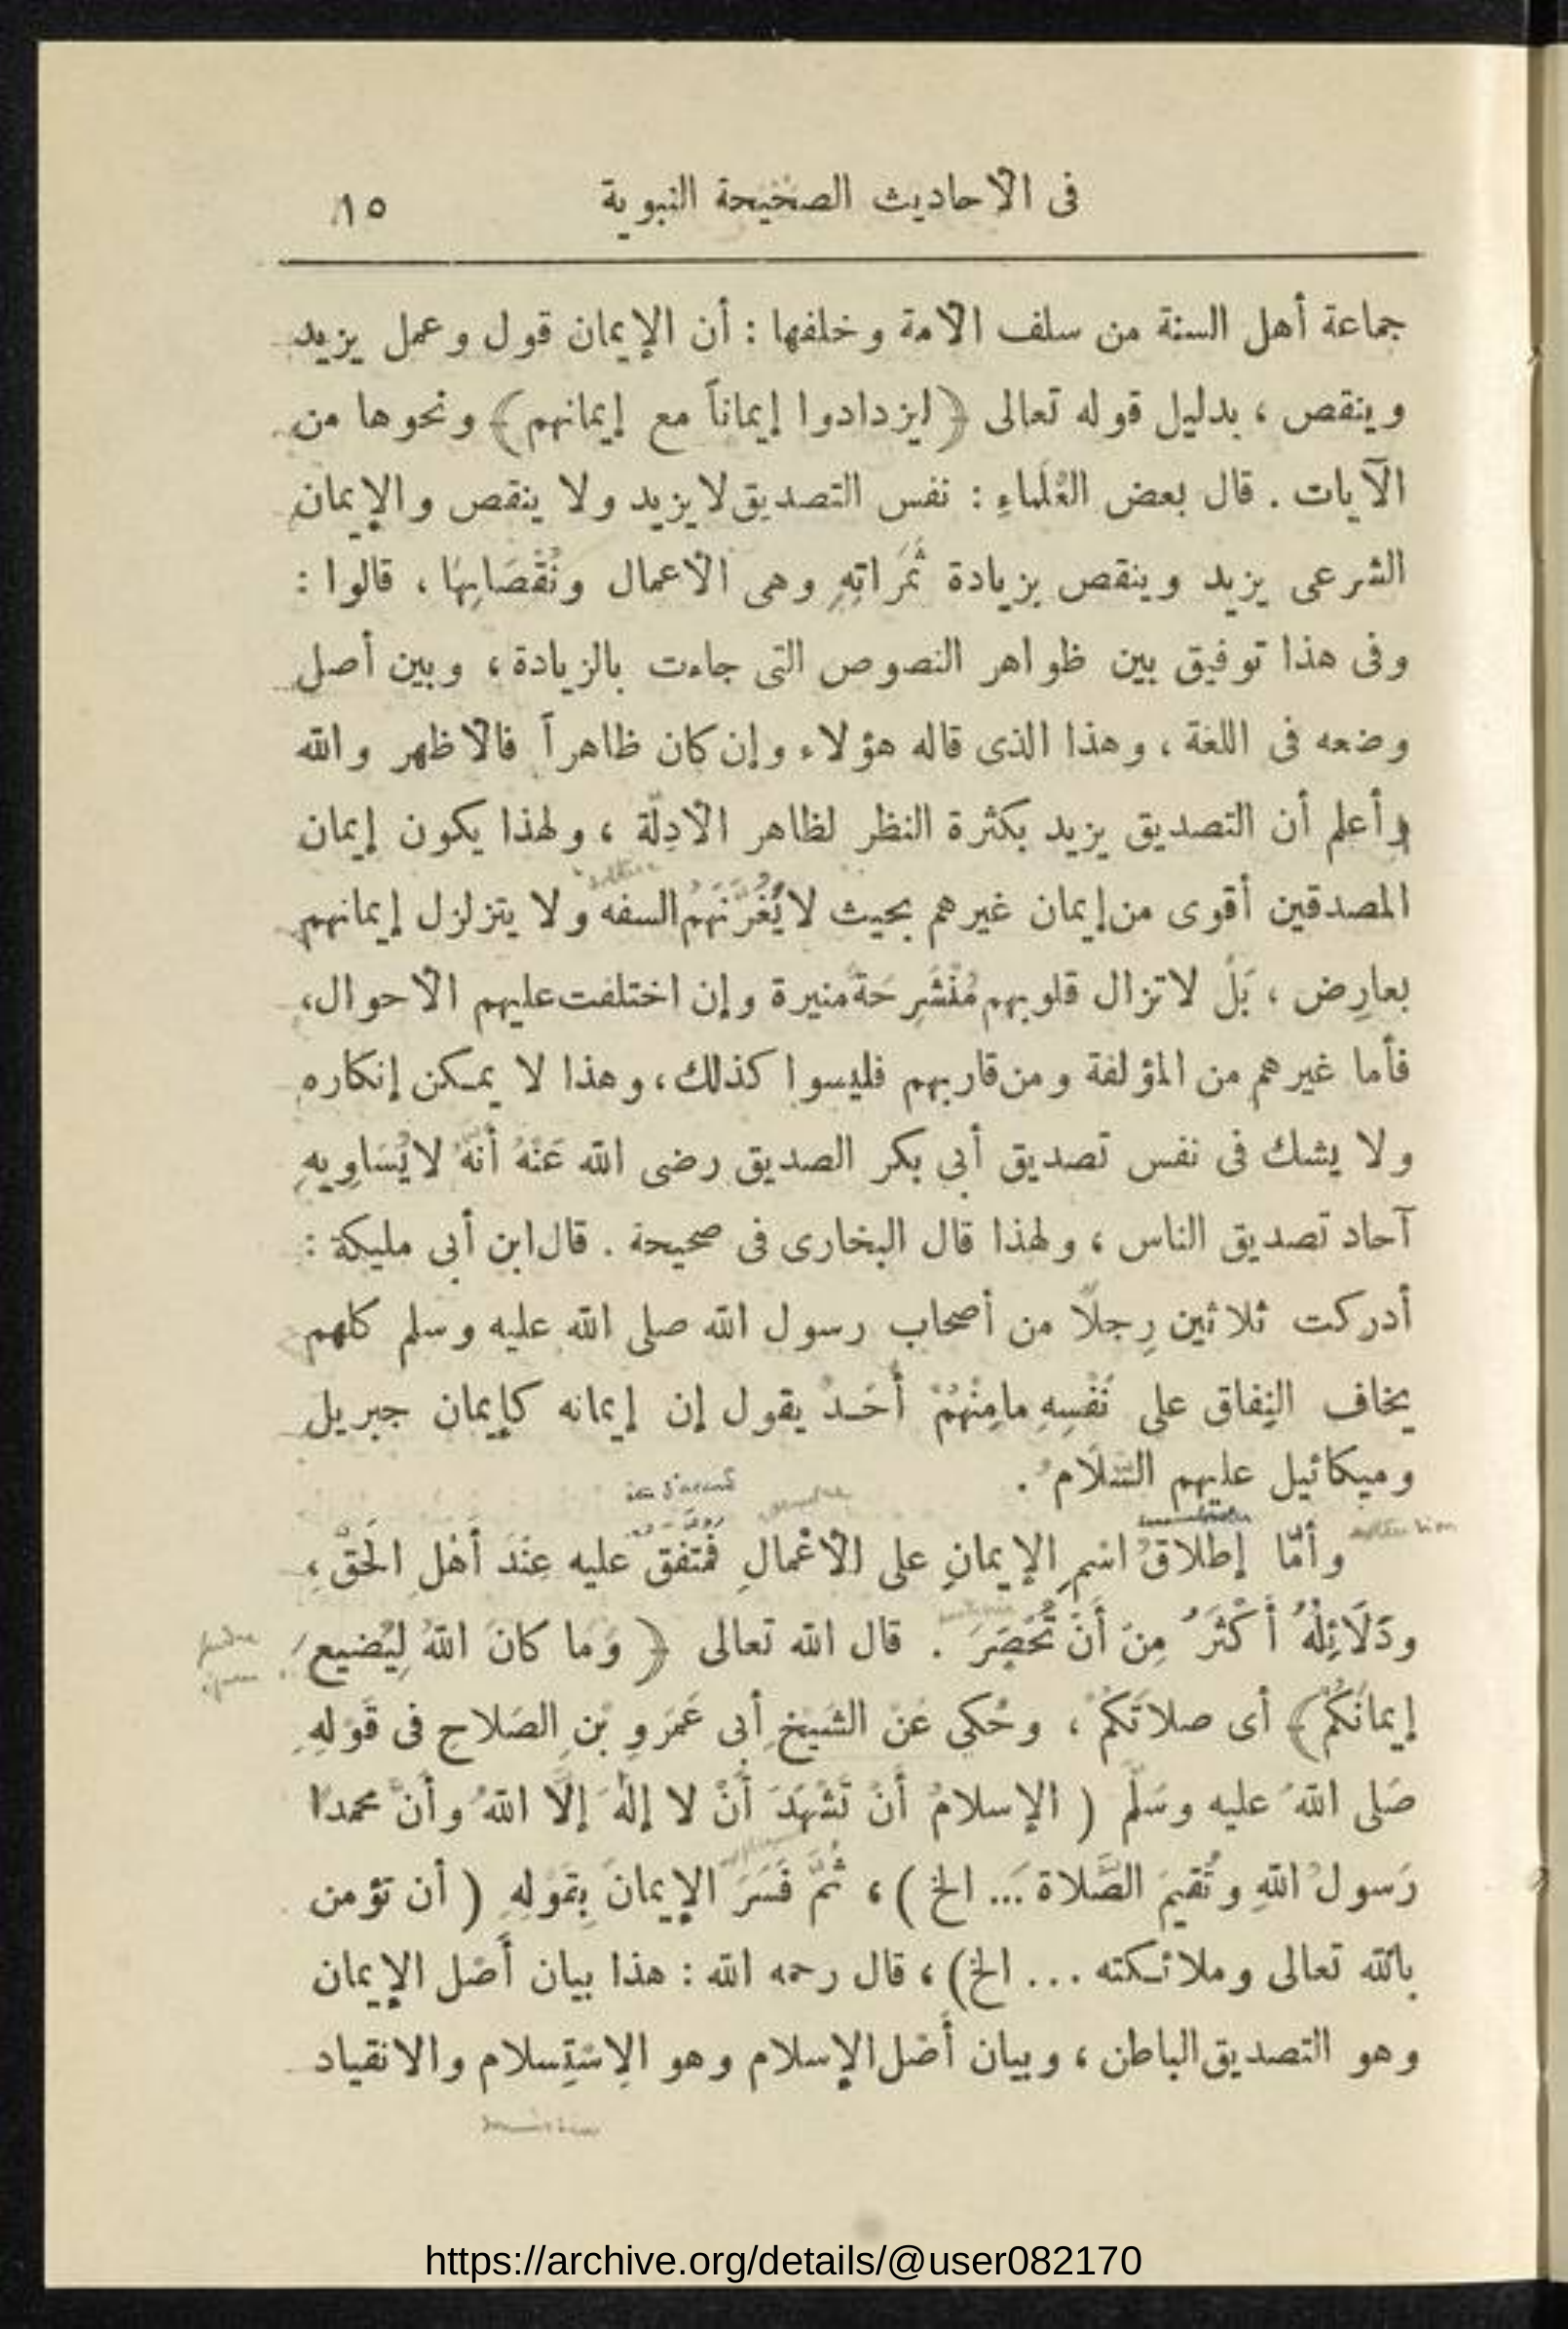 فى الأحاديث الصحيحة النبوية ١٥
جماعة أهل السنة من سلف الأمة وخلفها : أن الإيمان قول وعمل يزيد
وينقص ، بدليل قوله تعالى ﴿ ليزدادوا إيماناً مع إيمانهم ﴾ ونحوها من
الآيات . قال بعض العُلَماءِ : نفس التصديق لا يزيد ولا ينقص والإيمان
الشرعى يزيد وينقص بزيادة ثَمَراتِهِ وهى الأعمال ونُقْصَانِهَا ، قالوا :
وفى هذا توفيق بين ظواهر النصوص التى جاءت بالزيادة ، وبين أصل
وضعه فى اللغة ، وهذا الذى قاله هؤلاء وإن كان ظاهراً فالأظهر والله
أعلم أن التصديق يزيد بكثرة النظر لظاهر الأدِلّة ، ولهذا يكون إيمان
المصدقين أقوى من إيمان غيرهم بحيث لا يُغُرَّنَّهُمُ السفه ولا يتزلزل إيمانهم
بعارِض ، بَلْ لا تزال قلوبهم مُنْشَرِحَة منيرة وإن اختلفت عليهم الأحوال،
فأما غيرهم من المؤلفة ومن قاربهم فليسوا كذلك ، وهذا لا يمكن إنكاره
ولا يشك فى نفس تصديق أبى بكر الصديق رضى الله عَنْهُ أنَّهُ لا يُسَاوِيهِ
آحاد تصديق الناس ، ولهذا قال البخارى فى صحيحة . قال ابن أبى مليكة :
أدركت ثلاثين رِجلاً من أصحاب رسول الله صلى الله عليه وسلم كلهم
يخاف النِفاق على نَفْسِهِ مامِنْهُمْ أَحَدٌ يقول إن إيمانه كإيمان جبريل
وميكائيل عليهم السَّلَام .
in d'accord
وأمّا إطلاقُ اسْمِ الإيمانِ على الأعْمالِ فمُتفق عليه عِنْدَ أَهْلِ الحَقّ ،
ودَلَائِلُهُ أَكْثَرُ مِنْ أَنْ تُحْصَرَ . قال الله تعالى ﴿ وَمَا كانَ اللهُ لِيُضيع
إيمانَكُمْ ﴾ أى صلاتَكُمْ ، وحُكي عَنْ الشَيْخِ أبى عَمْرو بْنِ الصَلاحِ فى قَوْلهِ
صَلى اللهُ عليه وسَلّم ( الإسلامُ أَنْ تَشْهَدَ أَنْ لا إلهَ إلَّا اللهُ وأنَّ محمدًا
رَسولُ اللهِ وتُقيمَ الصَّلاة ... الخ ) ، ثُمَّ فَسَرَ الإيمانَ بِقَولهِ ( أن تؤمن
بالله تعالى وملائكته ... الخ) ، قال رحمه الله : هذا بيان أَصْل الإيمان
وهو التصديق الباطن ، وبيان أَصْل الإسلام وهو الِاسْتِسلام والانقياد
https://archive.org/details/@user082170